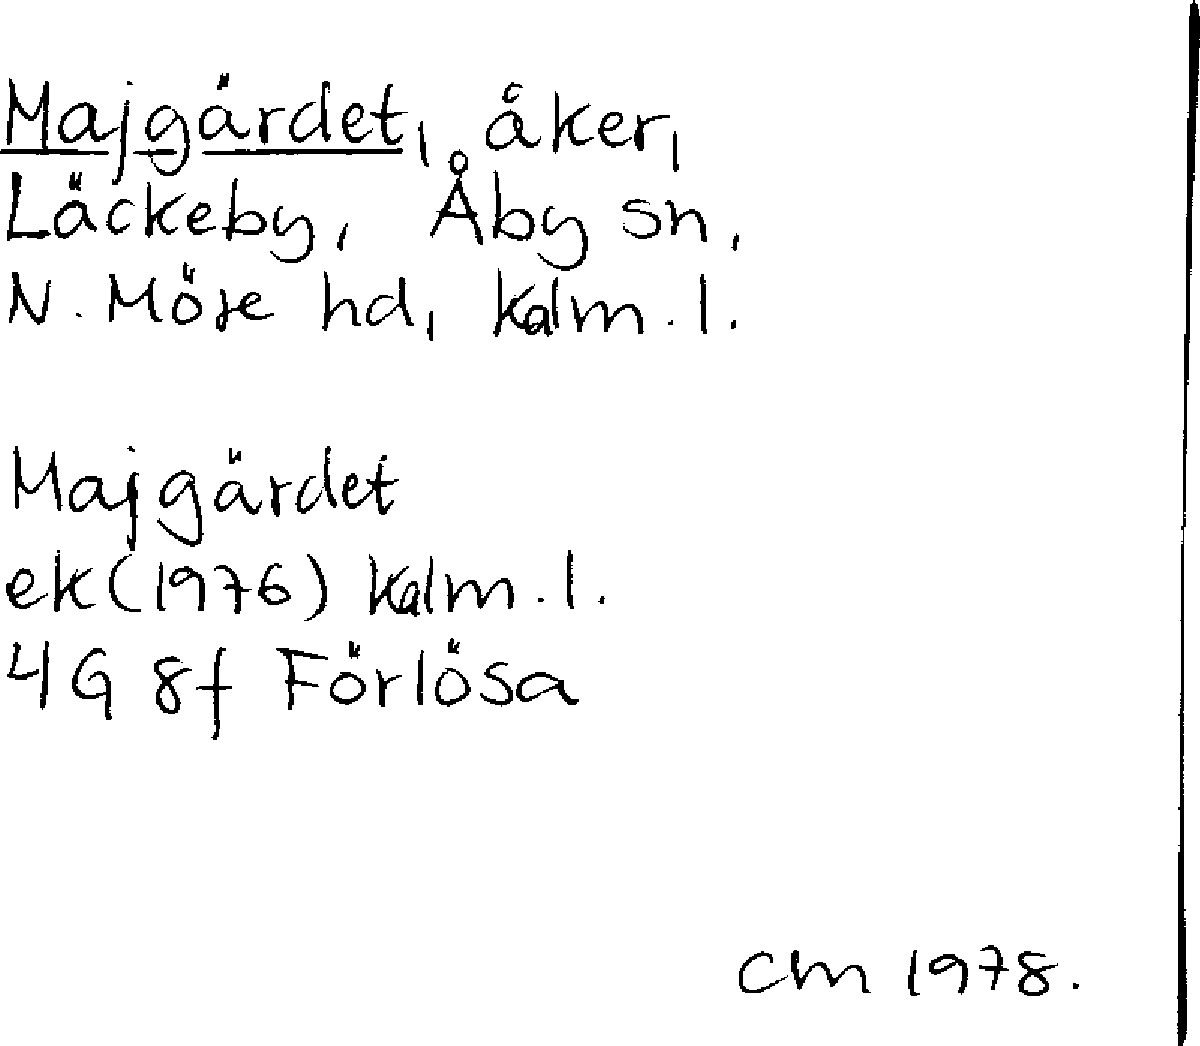 Majgärdet, åker,
Läckeby, Åby sn,
N. Möre hd, Kalm. l.
Majgärdet
ek (1976) Kalm. l.
4G 8f Förlösa
CM 1978.